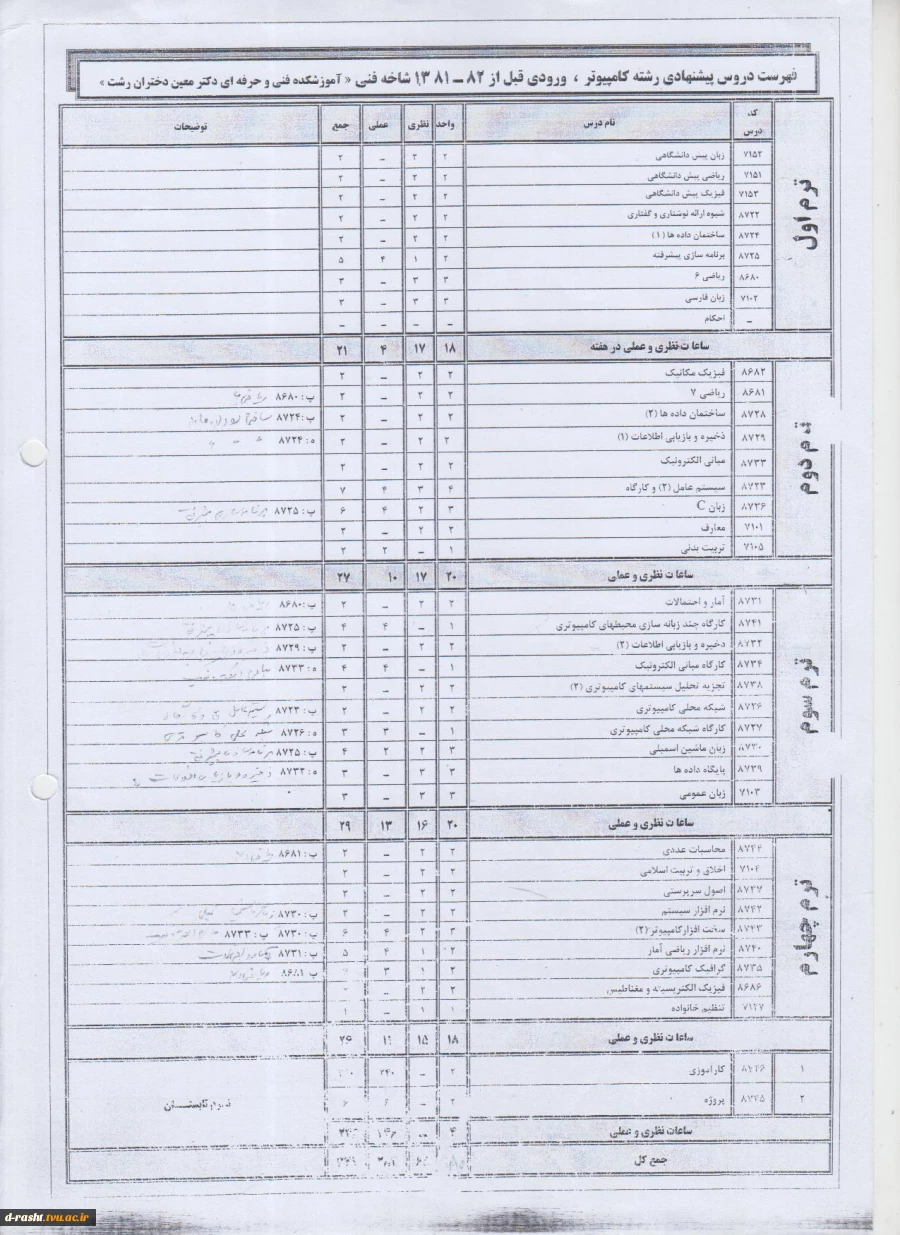 فهرست دروس پیشنهادی رشته کامپیوتر ، ورودی قبل از ۸۲ – ۱۳۸۱ شاخه فنی « آموزشکده فنی و حرفه ای دکتر معین دختران رشت »
کد درس نام درس واحد نظری عملی جمع توضیحات
ترم اول
۷۱۵۲ زبان پیش دانشگاهی ۲ ۲ – ۲
۷۱۵۱ ریاضی پیش دانشگاهی ۲ ۲ – ۲
۷۱۵۳ فیزیک پیش دانشگاهی ۲ ۲ – ۲
۸۷۲۲ شیوه ارائه نوشتاری و گفتاری ۲ ۲ – ۲
۸۷۲۴ ساختمان داده ها (۱) ۲ ۲ – ۲
۸۷۲۵ برنامه سازی پیشرفته ۲ ۱ ۴ ۵
۸۶۸۰ ریاضی ۶ ۳ ۳ – ۳
۷۱۰۲ زبان فارسی ۳ ۳ – ۳
– احکام – – – –
ساعات نظری و عملی در هفته ۱۸ ۱۷ ۴ ۲۱
ترم دوم
۸۶۸۲ فیزیک مکانیک ۲ ۲ – ۲
۸۶۸۱ ریاضی ۷ ۲ ۲ – ۲ پ: ۸۶۸۰
۸۷۲۸ ساختمان داده ها (۲) ۲ ۲ – ۲ پ: ۸۷۲۴
۸۷۲۹ ذخیره و بازیابی اطلاعات (۱) ۲ ۲ – ۲ ه: ۸۷۲۴
۸۷۳۳ مبانی الکترونیک ۲ ۲ – ۲
۸۷۲۳ سیستم عامل (۲) و کارگاه ۴ ۳ ۴ ۷
۸۷۳۶ زبان C ۳ ۲ ۴ ۶ پ: ۸۷۲۵
۷۱۰۱ معارف ۲ ۲ – ۲
۷۱۰۵ تربیت بدنی ۱ – ۲ ۲
ساعات نظری و عملی ۲۰ ۱۷ ۱۰ ۲۷
ترم سوم
۸۷۳۱ آمار و احتمالات ۲ ۲ – ۲ پ: ۸۶۸۰
۸۷۴۱ کارگاه چند زبانه سازی محیطهای کامپیوتری ۱ – ۴ ۴ پ: ۸۷۲۵
۸۷۳۲ ذخیره و بازیابی اطلاعات (۲) ۲ ۲ – ۲ پ: ۸۷۲۹
۸۷۳۴ کارگاه مبانی الکترونیک ۱ – ۴ ۴ ه: ۸۷۳۳
۸۷۳۸ تجزیه تحلیل سیستمهای کامپیوتری (۲) ۲ ۲ – ۲
۸۷۲۶ شبکه محلی کامپیوتری ۲ ۲ – ۲ پ: ۸۷۲۳
۸۷۲۷ کارگاه شبکه محلی کامپیوتری ۱ – ۳ ۳ ه: ۸۷۲۶
۸۷۳۰ زبان ماشین اسمبلی ۳ ۲ ۲ ۴ پ: ۸۷۲۵
۸۷۳۹ پایگاه داده ها ۳ ۳ – ۳ ه: ۸۷۳۲
۷۱۰۳ زبان عمومی ۳ ۳ – ۳
ساعات نظری و عملی ۲۰ ۱۶ ۱۳ ۲۹
ترم چهارم
۸۷۴۴ محاسبات عددی ۲ ۲ – ۲ پ: ۸۶۸۱
۷۱۰۴ اخلاق و تربیت اسلامی ۲ ۲ – ۲
۸۷۳۷ اصول سرپرستی ۲ ۲ – ۲
۸۷۴۲ نرم افزار سیستم ۲ ۲ – ۲ پ: ۸۷۳۰
۸۷۴۳ سخت افزار کامپیوتر (۲) ۳ ۲ ۴ ۶ پ: ۸۷۳۰ پ: ۸۷۳۳
۸۷۴۰ نرم افزار ریاضی آمار ۲ ۱ ۴ ۵ پ: ۸۷۳۱
۸۷۳۵ گرافیک کامپیوتری ۲ ۱ ۳ پ: ۸۶۸۱
۸۶۸۶ فیزیک الکتریسیته و مغناطیس ۲ ۲ –
۷۱۲۷ تنظیم خانواده ۱ ۱ – ۱
ساعات نظری و عملی ۱۸ ۱۵ ۱۱ ۲۶
۱ ۸۷۴۶ کارآموزی ۲ – ۲۴۰
۲ ۸۷۴۵ پروژه ۲ – ۶ ۶
ترم تابستان
ساعات نظری و عملی ۴
جمع کل
d-rasht.tvu.ac.ir